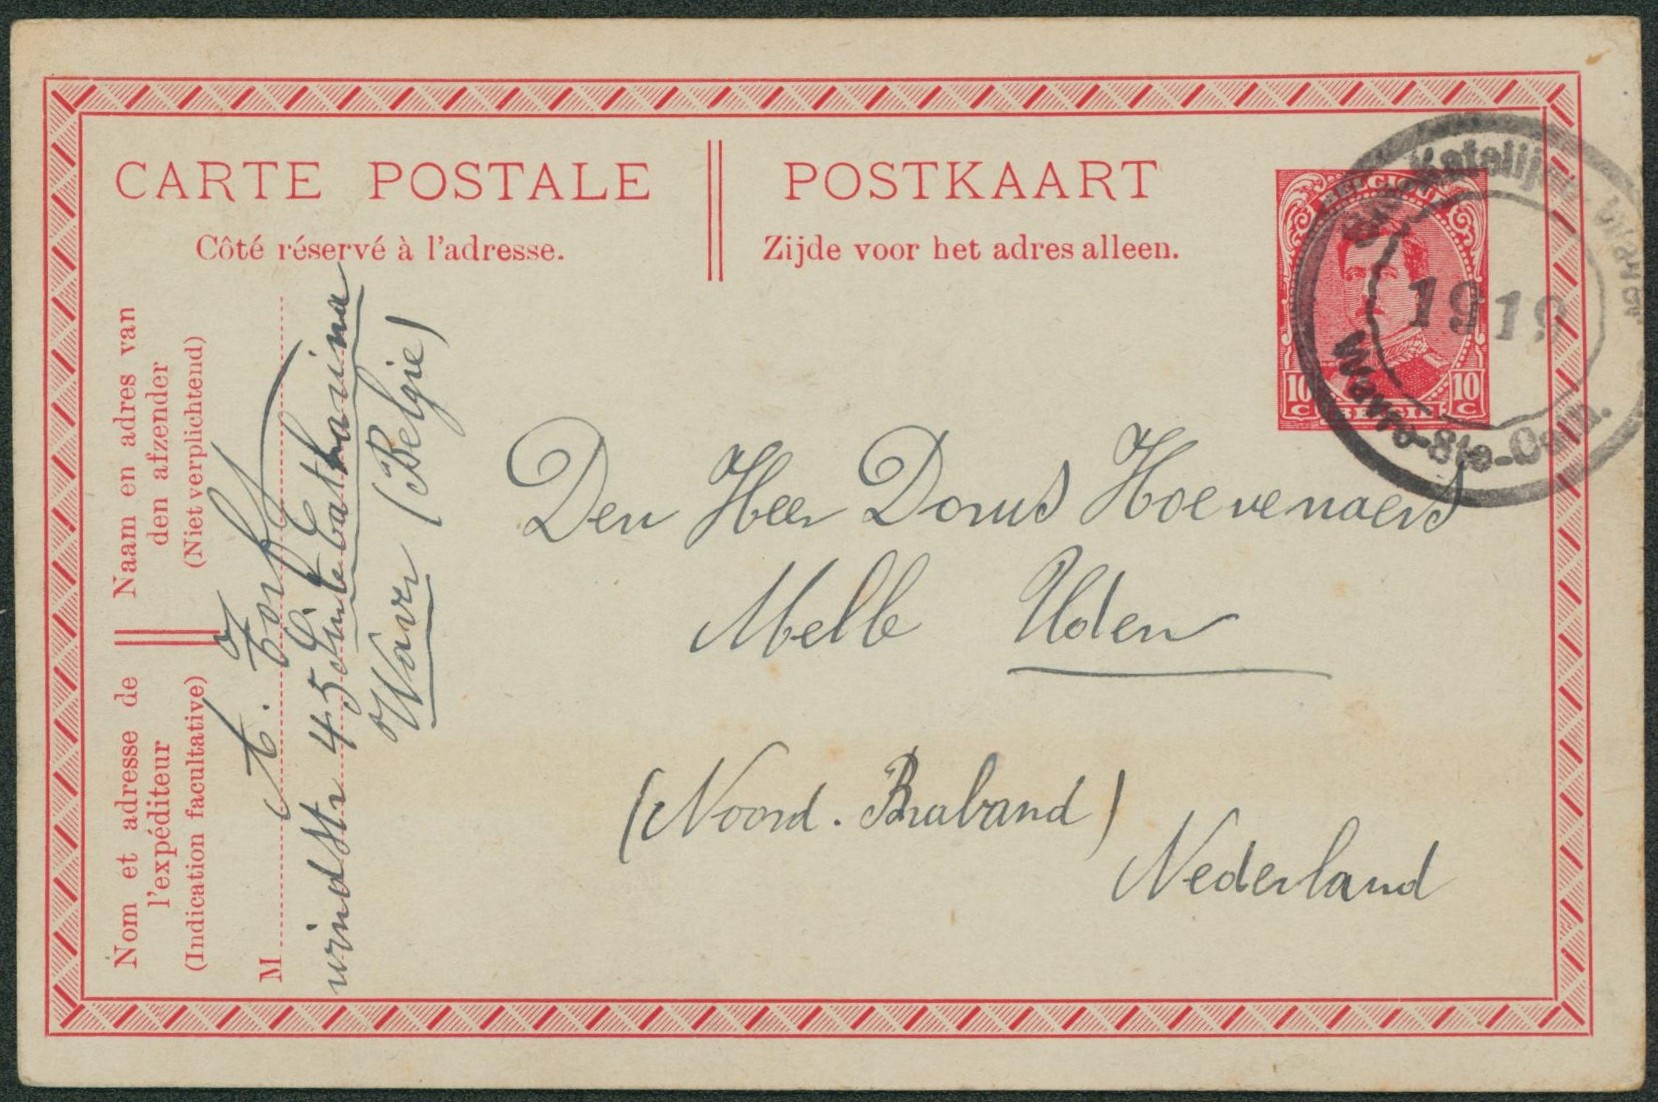 CARTE POSTALE
Côté réservé à l'adresse.
POSTKAART
Zijde voor het adres alleen.
BELGIQUE
10 C
10 C
BELGIË
Katelijne-Waver
1919
Wavre-Ste-Cath.
Naam en adres van
den afzender
(Niet verplichtend)
Nom et adresse de
l'expéditeur
(Indication facultative)
M
45 Sinte Catharina
Waver (Belgie)
Den Heer Dorus Hoevenaers
Melle Uden
(Noord. Braband)
Nederland